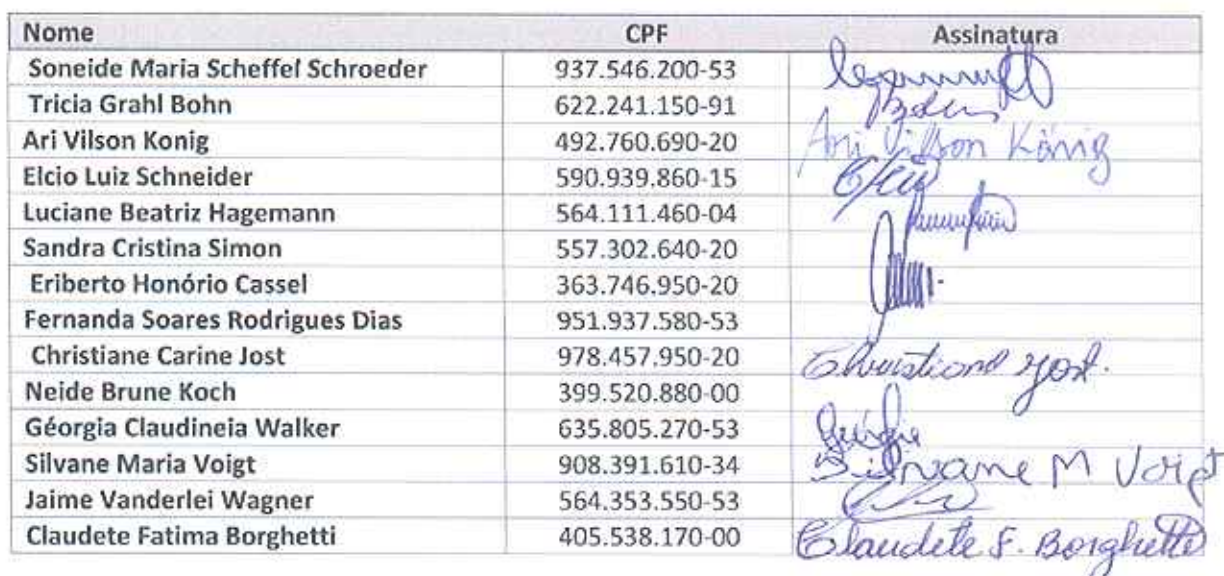 Nome CPF Assinatura
Soneide Maria Scheffel Schroeder 937.546.200-53
Tricia Grahl Bohn 622.241.150-91
Ari Vilson Konig 492.760.690-20 Ari Vilson König
Elcio Luiz Schneider 590.939.860-15
Luciane Beatriz Hagemann 564.111.460-04
Sandra Cristina Simon 557.302.640-20
Eriberto Honório Cassel 363.746.950-20
Fernanda Soares Rodrigues Dias 951.937.580-53
Christiane Carine Jost 978.457.950-20 Christiane Jost.
Neide Brune Koch 399.520.880-00
Géorgia Claudineia Walker 635.805.270-53 Geórgia
Silvane Maria Voigt 908.391.610-34 Silvane M Voigt
Jaime Vanderlei Wagner 564.353.550-53
Claudete Fatima Borghetti 405.538.170-00 Claudete F. Borghetti